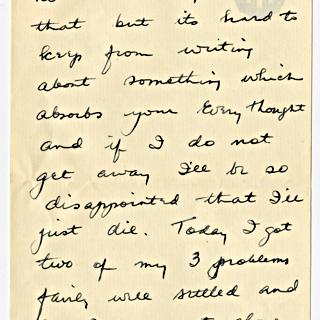 that but its hard to
keep from writing
about something which
absorbs your every thought
and if I do not
get away I'll be so
disappointed that I'll
just die. Today I got
two of my 3 problems
fairly well settled and